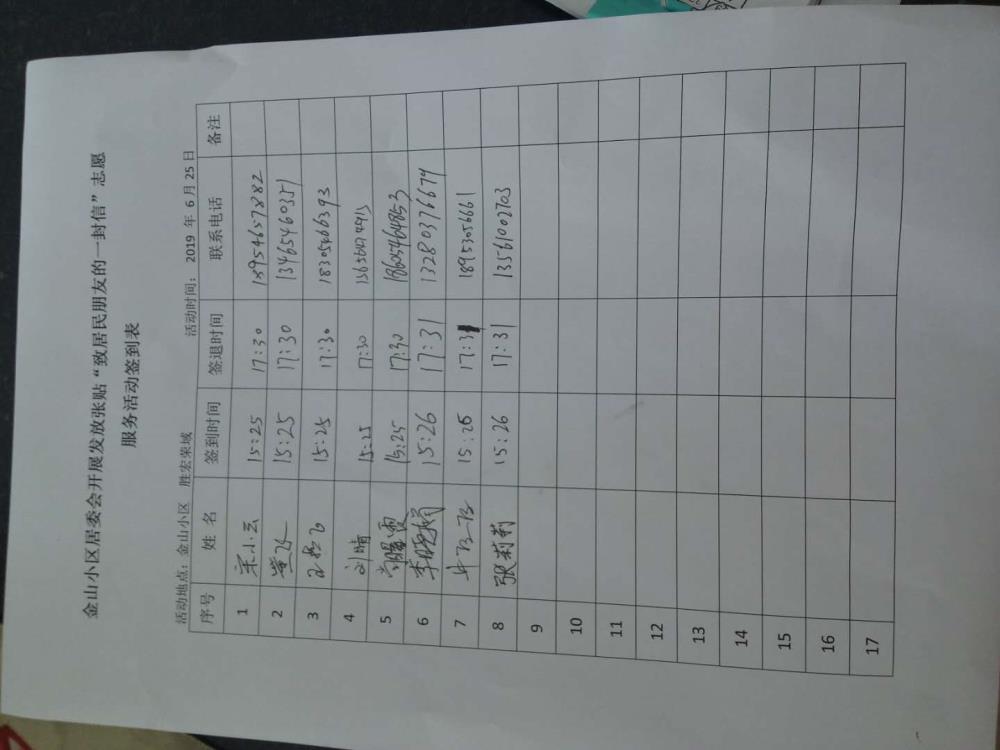 金山小区居委会开展发放张贴“致居民朋友的一封信”志愿
服务活动签到表
活动地点：金山小区 胜宏荣域 活动时间： 2019 年 6 月 25 日
序号 姓 名 签到时间 签退时间 联系电话 备注
1 宋小云 15:25 17:30 13954657882
2 15:25 17:30 13465460351
3 15:25 17:30 18305466393
4 刘晴 15:25 17:30
5 15:25 17:30 18605464853
6 李晓娟 15:26 17:31 13280376679
7 15:26 17:31 18953056661
8 张莉莉 15:26 17:31 13561002703
9
10
11
12
13
14
15
16
17